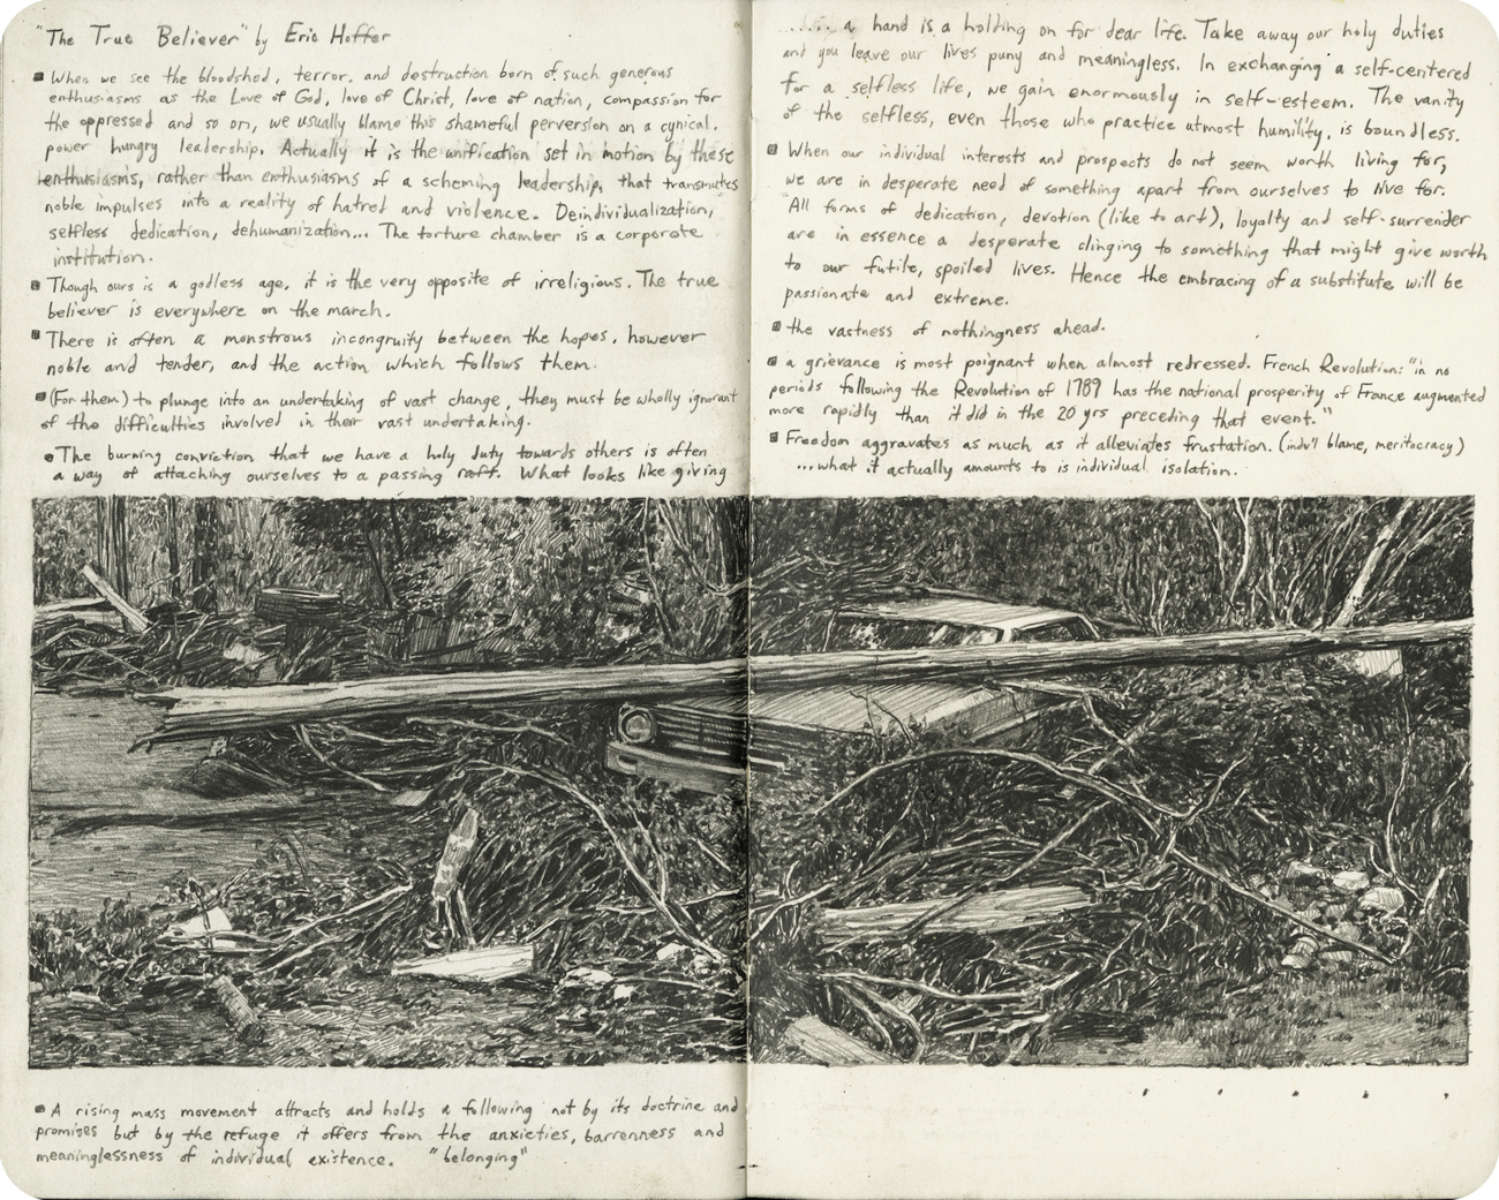 "The True Believer" by Eric Hoffer
When we see the bloodshed, terror, and destruction born of such generous
enthusiasms as the Love of God, love of Christ, love of nation, compassion for
the oppressed and so on, we usually blame this shameful perversion on a cynical,
power hungry leadership. Actually it is the unification set in motion by these
enthusiasms, rather than enthusiasms of a scheming leadership, that transmutes
noble impulses into a reality of hatred and violence. Deindividualization,
selfless dedication, dehumanization... The torture chamber is a corporate
institution.
Though ours is a godless age, it is the very opposite of irreligious. The true
believer is everywhere on the march.
There is often a monstrous incongruity between the hopes, however
noble and tender, and the action which follows them.
(For them) to plunge into an undertaking of vast change, they must be wholly ignorant
of the difficulties involved in their vast undertaking.
The burning conviction that we have a holy duty towards others is often
a way of attaching ourselves to a passing raft. What looks like giving
a hand is a holding on for dear life. Take away our holy duties
and you leave our lives puny and meaningless. In exchanging a self-centered
for a selfless life, we gain enormously in self-esteem. The vanity
of the selfless, even those who practice utmost humility, is boundless.
When our individual interests and prospects do not seem worth living for,
we are in desperate need of something apart from ourselves to live for.
All forms of dedication, devotion (like to art), loyalty and self-surrender
are in essence a desperate clinging to something that might give worth
to our futile, spoiled lives. Hence the embracing of a substitute will be
passionate and extreme.
the vastness of nothingness ahead.
a grievance is most poignant when almost redressed. French Revolution: "in no
periods following the Revolution of 1789 has the national prosperity of France augmented
more rapidly than it did in the 20 yrs preceding that event."
Freedom aggravates as much as it alleviates frustation. (indv'l blame, meritocracy)
...what it actually amounts to is individual isolation.
A rising mass movement attracts and holds a following not by its doctrine and
promises but by the refuge it offers from the anxieties, barrenness and
meaninglessness of individual existence. "belonging"